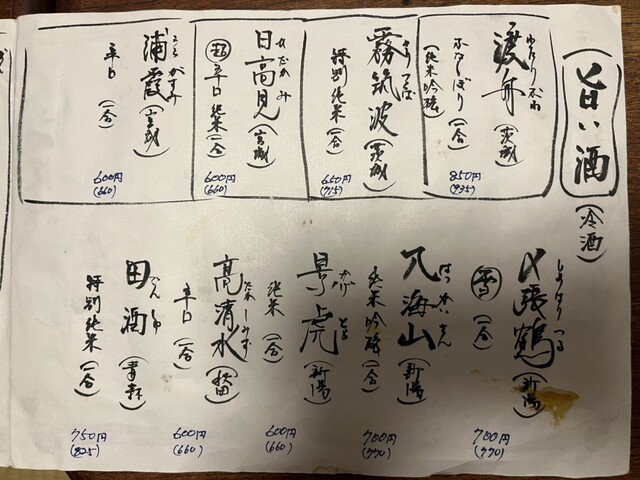 旨い酒
(冷酒)
わたりぶね
渡舟(茨城)
ふなしぼり(一合)
(純米吟醸)
850円
(935)
きりつくば
霧筑波(茨城)
特別純米(一合)
650円
(715)
ひたかみ
日高見(宮城)
超辛口純米(一合)
600円
(660)
うらがすみ
浦霞(宮城)
辛口(一合)
600円
(660)
しめはりつる
〆張鶴(新潟)
雪(一合)
700円
(770)
はっかいさん
八海山(新潟)
純米吟醸(一合)
700円
(770)
かげとら
景虎(新潟)
純米(一合)
600円
(660)
たかしみず
高清水(秋田)
辛口(一合)
600円
(660)
でんしゅ
田酒(青森)
特別純米(一合)
750円
(825)